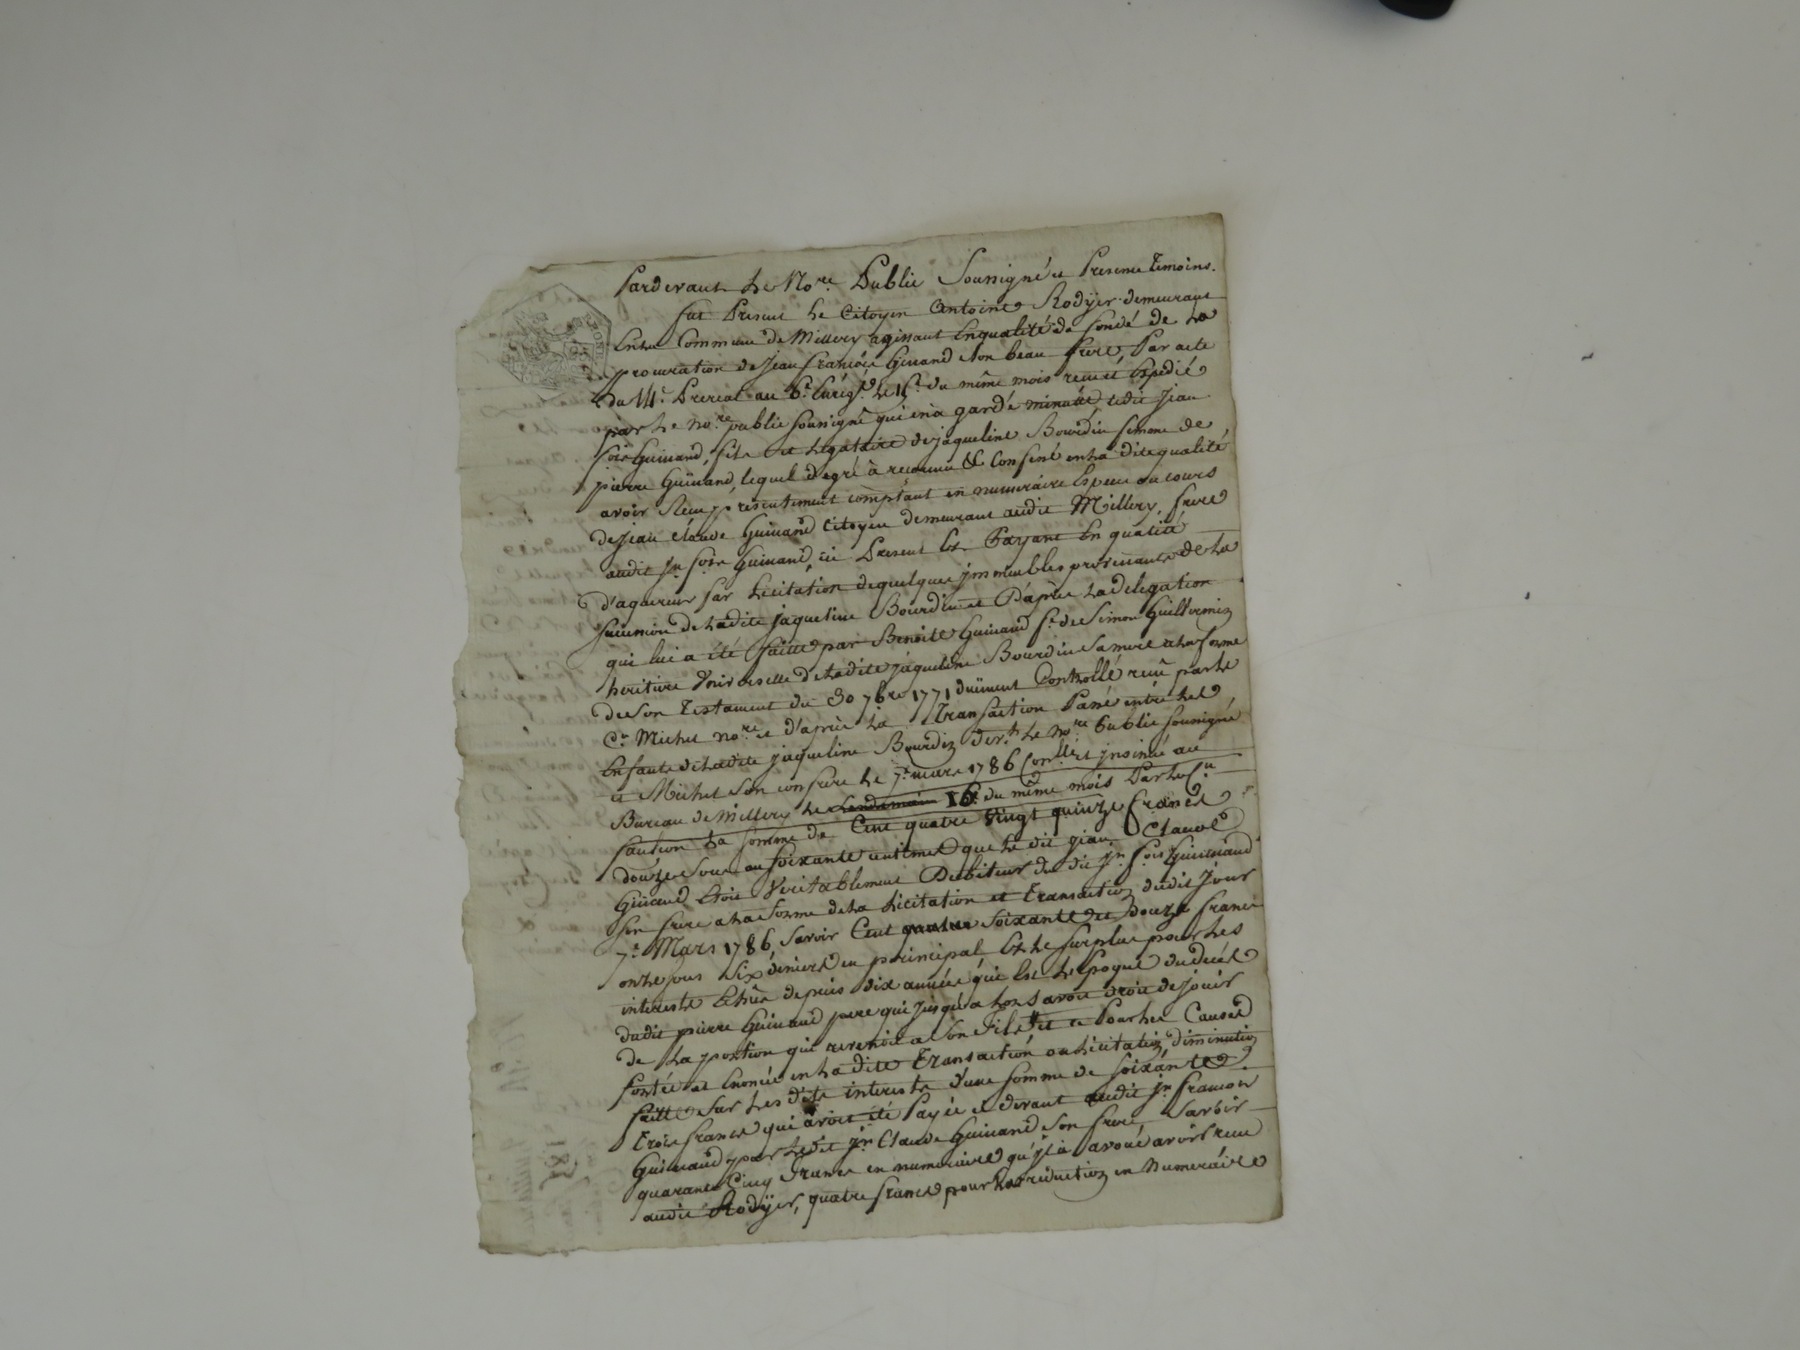 Pardevant Le No.re Public Soussigné et Presens Temoins.
fut Present Le Citoyen Antoine Rodÿer demeurant
En la Commune de Millery agissant En qualité de fondé de La
procuration de Jean François Guinand son beau frere, Par acte
du 14.e Prereal au 6.e Enregt.é Le 15.e du même mois receu et Expedié
par Le no.re public soussigné qui en a gardé minutte, ledit Jean
fois Guinand, fils et Legataire de jaqueline Bourdin femme de
pierre Guinand, lequel de gré à reconnu & Confessé en La dite qualité
avoir Reçu presentement comptant en numeraire Espece au cours
de Jean Claude Guinand Citoyen demeurant audit Millery, frere
audit jn. fois Guinand, ici Present Et Payant En qualité
d'aquereur par Licitation de quelques jmmeubles provenants de La
succession de Ladite jaqueline Bourdin et D'après La délégation
qui lui a été faitte par Benoite Guinand f.e de Simon Guillermin
heritiere Universelle de Ladite jaqueline Bourdin Sa mere a La forme
de son Testament du 30 7bre 1771 düement Controllé reçu par Le
C.n Michel no.re et d'après La Transaction Passé entre Les
Enfants de Ladite jaqueline Bourdin devt. Le no.re Public soussigné
et Michel Son confrere Le 7.e mars 1786 Conllé. et jnsinué au
Bureau de Millery Le Lendemain 16 du même mois Par
La somme de Cent quatre Vingt quinze francs
douze Sous ou soixante centimes que Le dit Jean Claude
Guinand Etoit Veritablement Debiteur du dit jn. fois Guinand
son frere a La forme de La Licitation et Transaction dudit jour
7.e Mars 1786, Savoir Cent soixante et douze francs
onze sous Six deniers en principal Et Le surplus pour Les
interests Echus depuis dix années qui Est L'Epoque du decès
dudit pierre Guinand pere qui jusqu'a Lors avoit droit de jouir
de La portion qui revenoit a Son Fils et ce Pour Les Causes
portées et Enoncée en La dite Transaction ou Licitation diminution
faitte Sur Les dits interests d'une somme de soixante
Trois francs qui avoit été Payée ci devant audit jn. francois
Guinand par Ledit jn. Claude Guinand son frere Savoir
quarante Cinq Francs en numeraire qu'jl à avoué avoir receu
audit Rodÿer, quatre francs pour La reduction en Numeraire